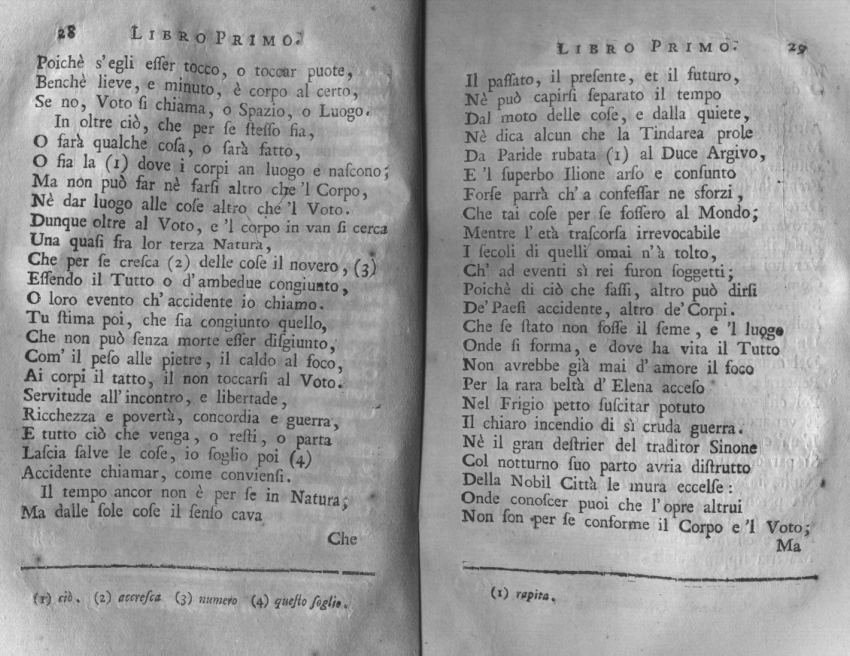 28 LIBRO PRIMO.
Poichè s'egli eſſer tocco, o toccar puote,
Benchè lieve, e minuto, è corpo al certo,
Se no, Voto ſi chiama, o Spazio, o Luogo.
In oltre ciò, che per ſe ſteſſo ſia,
O farà qualche coſa, o ſarà fatto,
O ſia la (1) dove i corpi an luogo e naſcono;
Ma non può far nè farſi altro che 'l Corpo,
Nè dar luogo alle coſe altro che 'l Voto.
Dunque oltre al Voto, e 'l corpo in van ſi cerca
Una quaſi fra lor terza Natura,
Che per ſe creſca (2) delle coſe il novero, (3)
Eſſendo il Tutto o d'ambedue congiunto,
O loro evento ch'accidente io chiamo.
Tu ſtima poi, che ſia congiunto quello,
Che non può ſenza morte eſſer diſgiunto,
Com' il peſo alle pietre, il caldo al foco,
Ai corpi il tatto, il non toccarſi al Voto.
Servitude all'incontro, e libertade,
Ricchezza e povertà, concordia e guerra,
E tutto ciò che venga, o reſti, o parta
Laſcia ſalve le coſe, io ſoglio poi (4)
Accidente chiamar, come convienſi.
Il tempo ancor non è per ſe in Natura;
Ma dalle ſole coſe il ſenſo cava
Che
(1) ciò. (2) accreſca (3) numero (4) queſto ſoglio.
LIBRO PRIMO. 29
Il paſſato, il preſente, et il futuro,
Nè può capirſi ſeparato il tempo
Dal moto delle coſe, e dalla quiete,
Nè dica alcun che la Tindarea prole
Da Paride rubata (1) al Duce Argivo,
E 'l ſuperbo Ilione arſo e conſunto
Forſe parrà ch'a confeſſar ne sforzi,
Che tai coſe per ſe foſſero al Mondo;
Mentre l'età traſcorſa irrevocabile
I ſecoli di quelli omai n'à tolto,
Ch' ad eventi sì rei furon ſoggetti;
Poichè di ciò che faſſi, altro può dirſi
De' Paeſi accidente, altro de' Corpi.
Che ſe ſtato non foſſe il ſeme, e 'l luogo
Onde ſi forma, e dove ha vita il Tutto
Non avrebbe già mai d'amore il foco
Per la rara beltà d'Elena acceſo
Nel Frigio petto ſuſcitar potuto
Il chiaro incendio di sì cruda guerra.
Nè il gran deſtrier del traditor Sinone
Col notturno ſuo parto avria diſtrutto
Della Nobil Città le mura eccelſe:
Onde conoſcer puoi che l'opre altrui
Non ſon per ſe conforme il Corpo e 'l Voto;
Ma
(1) rapita.